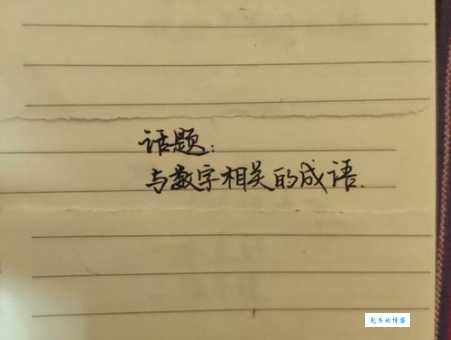 话题:
与数字相关的成语.